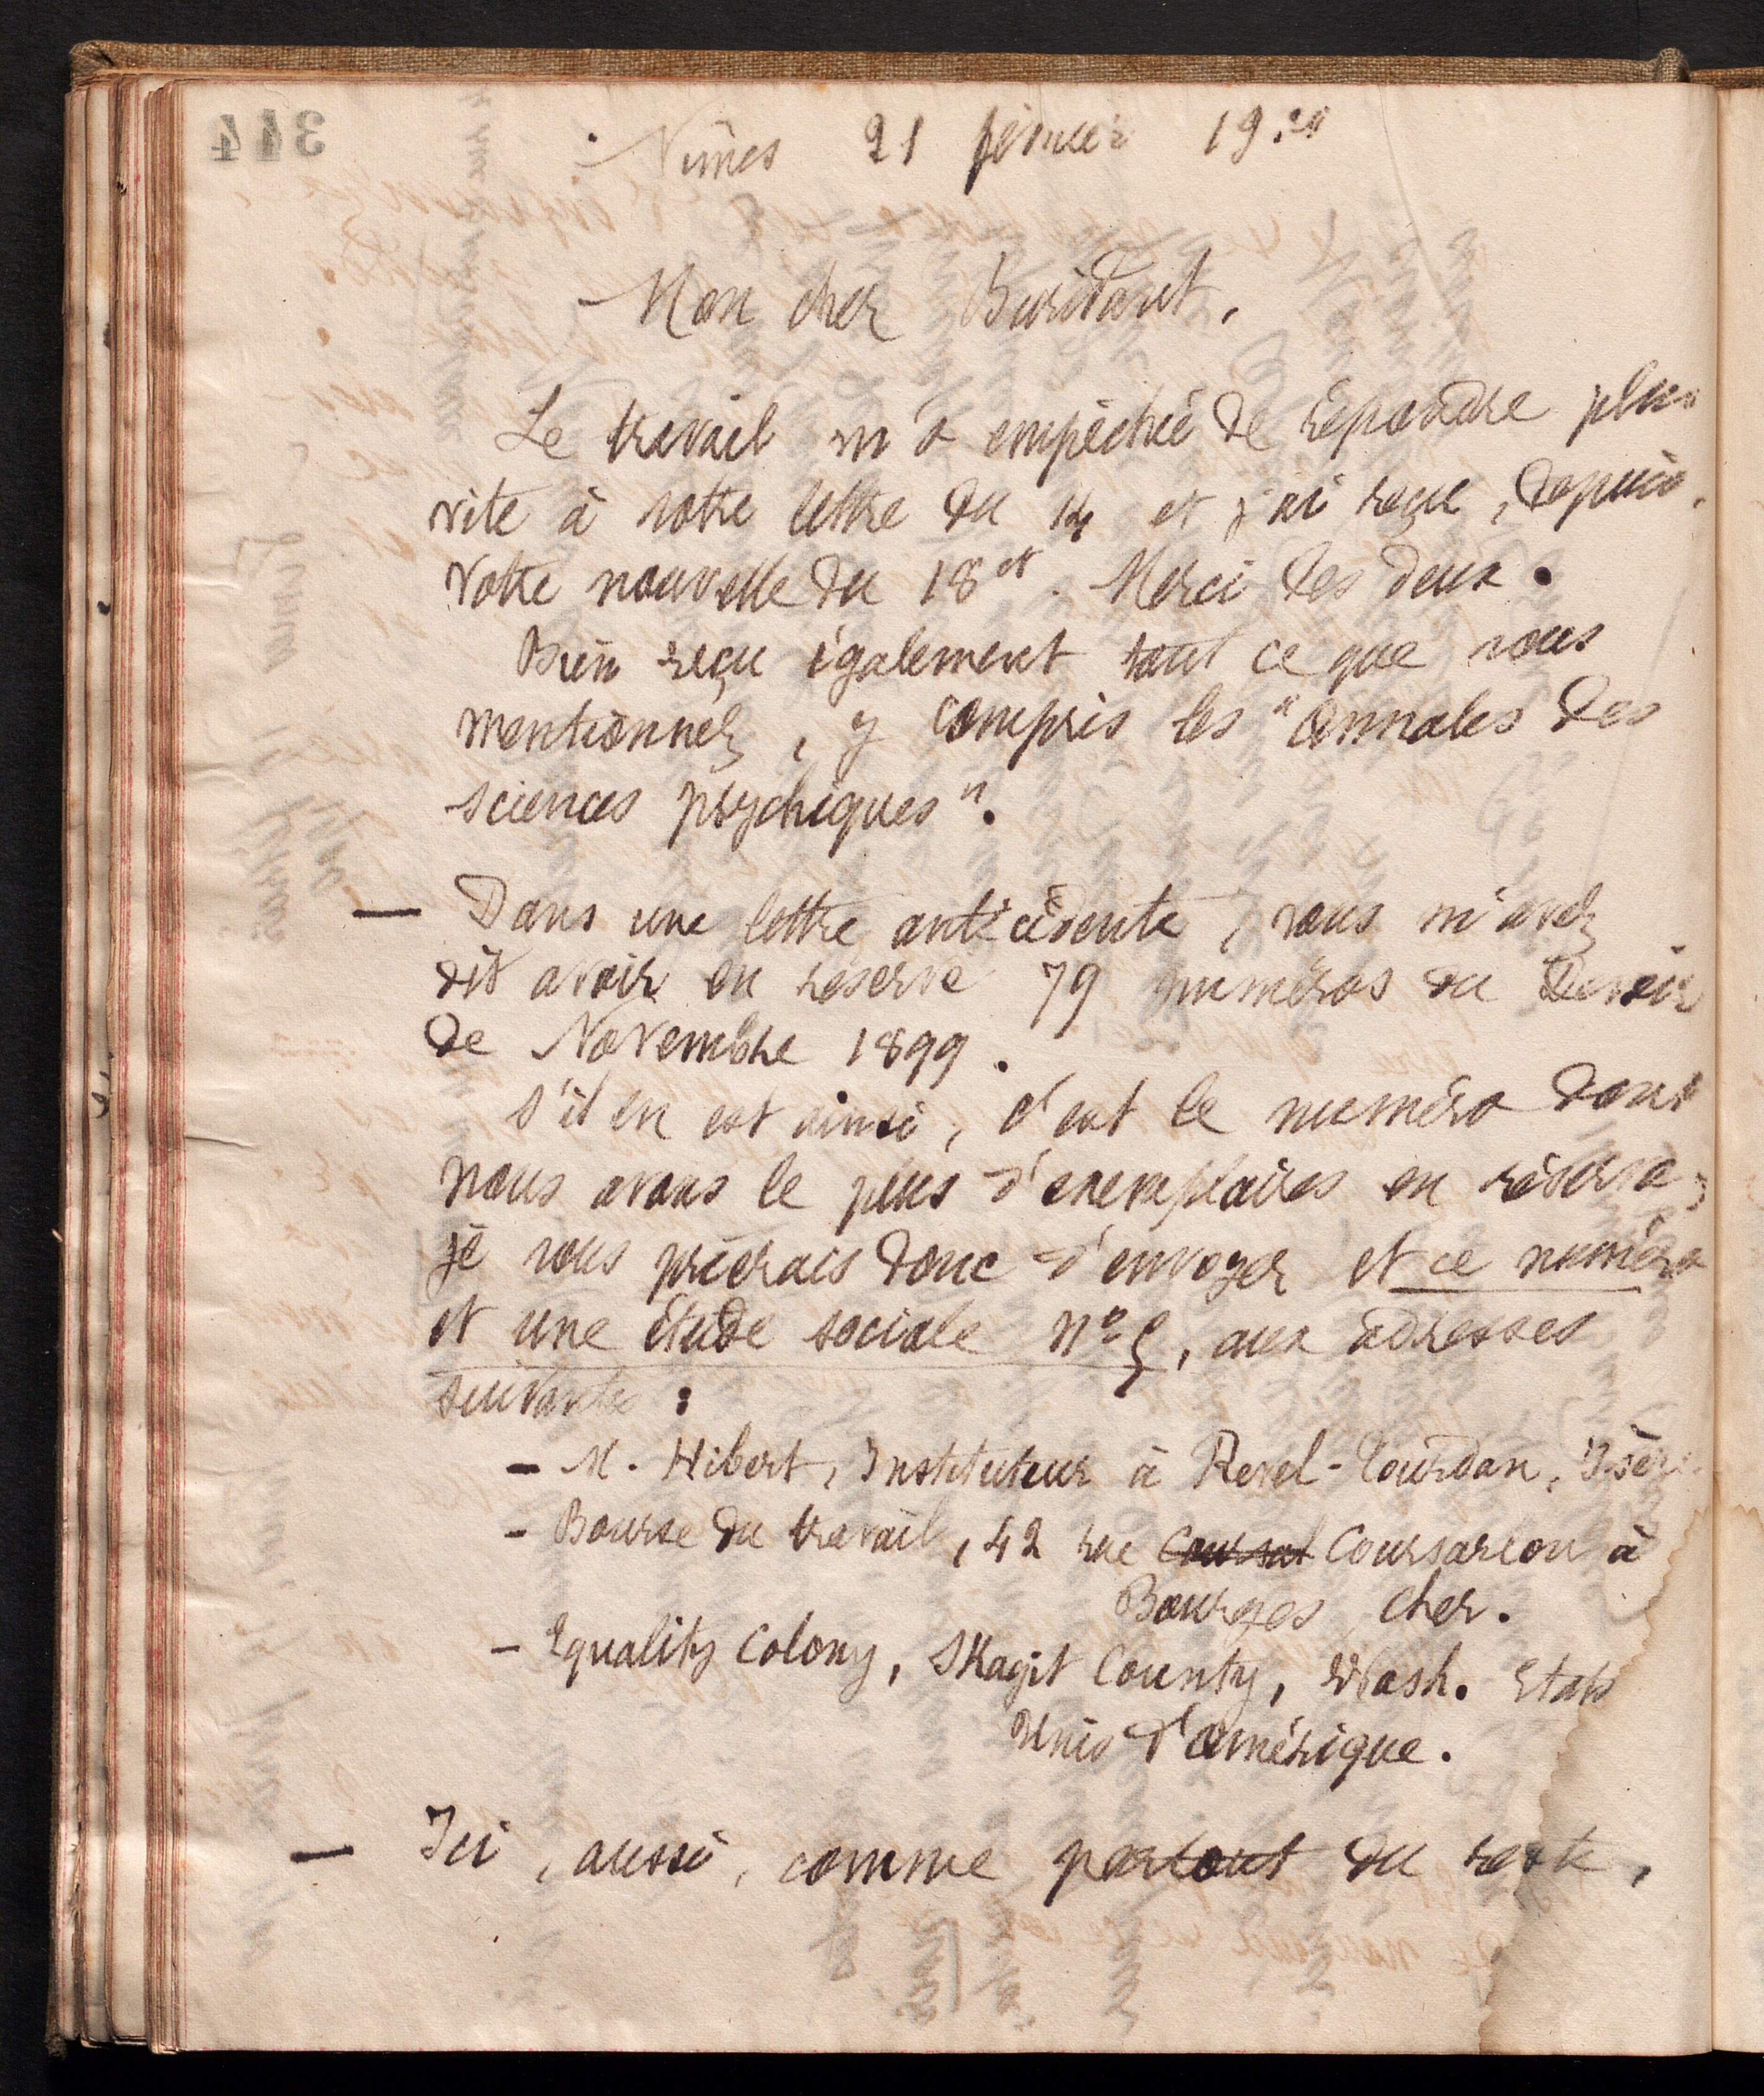 Nîmes 21 février 19
Mon cher Buridant,
Le travail m'a empêchée de répondre plus
vite à votre lettre du 14 et j'ai reçu, depuis,
votre nouvelle du 18 ct. Merci des deux.
Bien reçu également tout ce que vous
mentionnez, y compris les "Annales des
sciences psychiques".
— Dans une lettre antécédente, vous m'avez
dit avoir en réserve 79 numéros du Devoir
de Novembre 1899.
S'il en est ainsi, c'est le numéro dont
nous avons le plus d'exemplaires en réserve;
je vous prierais donc d'envoyer et ce numéro
et une étude sociale n° 5, aux adresses
suivantes :
- M. Hibert, Instituteur à Revel-Tourdan, Isère
- Bourse du travail, 42 rue Coursarlon à
Bourges Cher.
- Equality Colony, Skagit County, Wash. Etats
Unis d'Amérique.
— Ici, aussi, comme partout du reste,
344